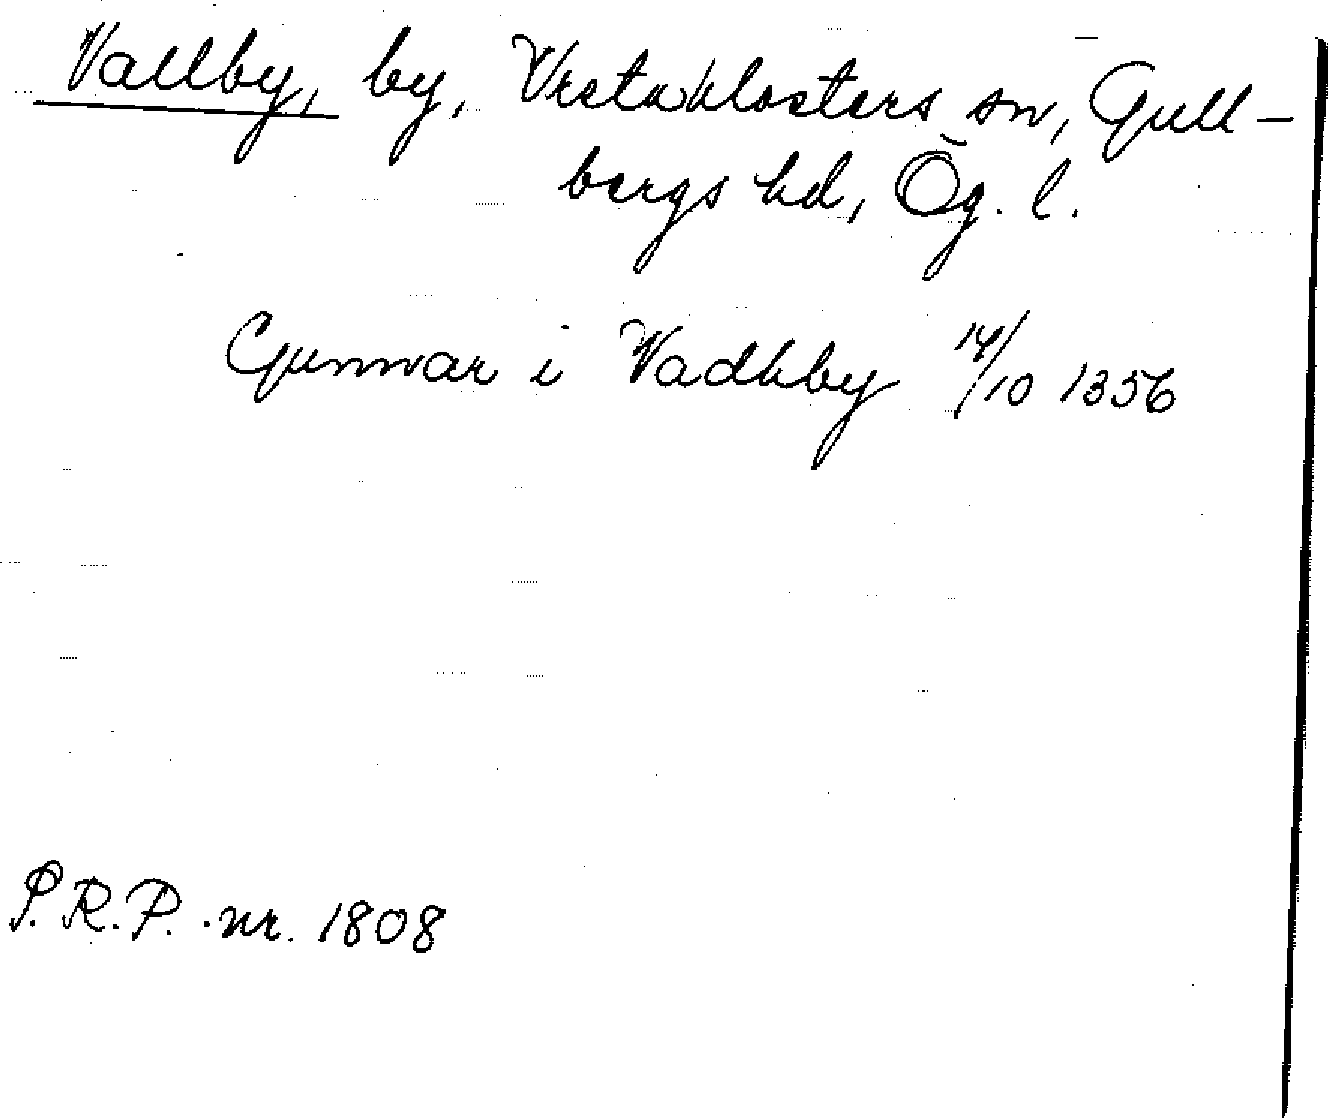 Vallby, by, Vreta klosters sn, Gull-
bergs hd, Ög. l.
Gunnar i Vadhby 14/10 1356
P.R.P. nr. 1808